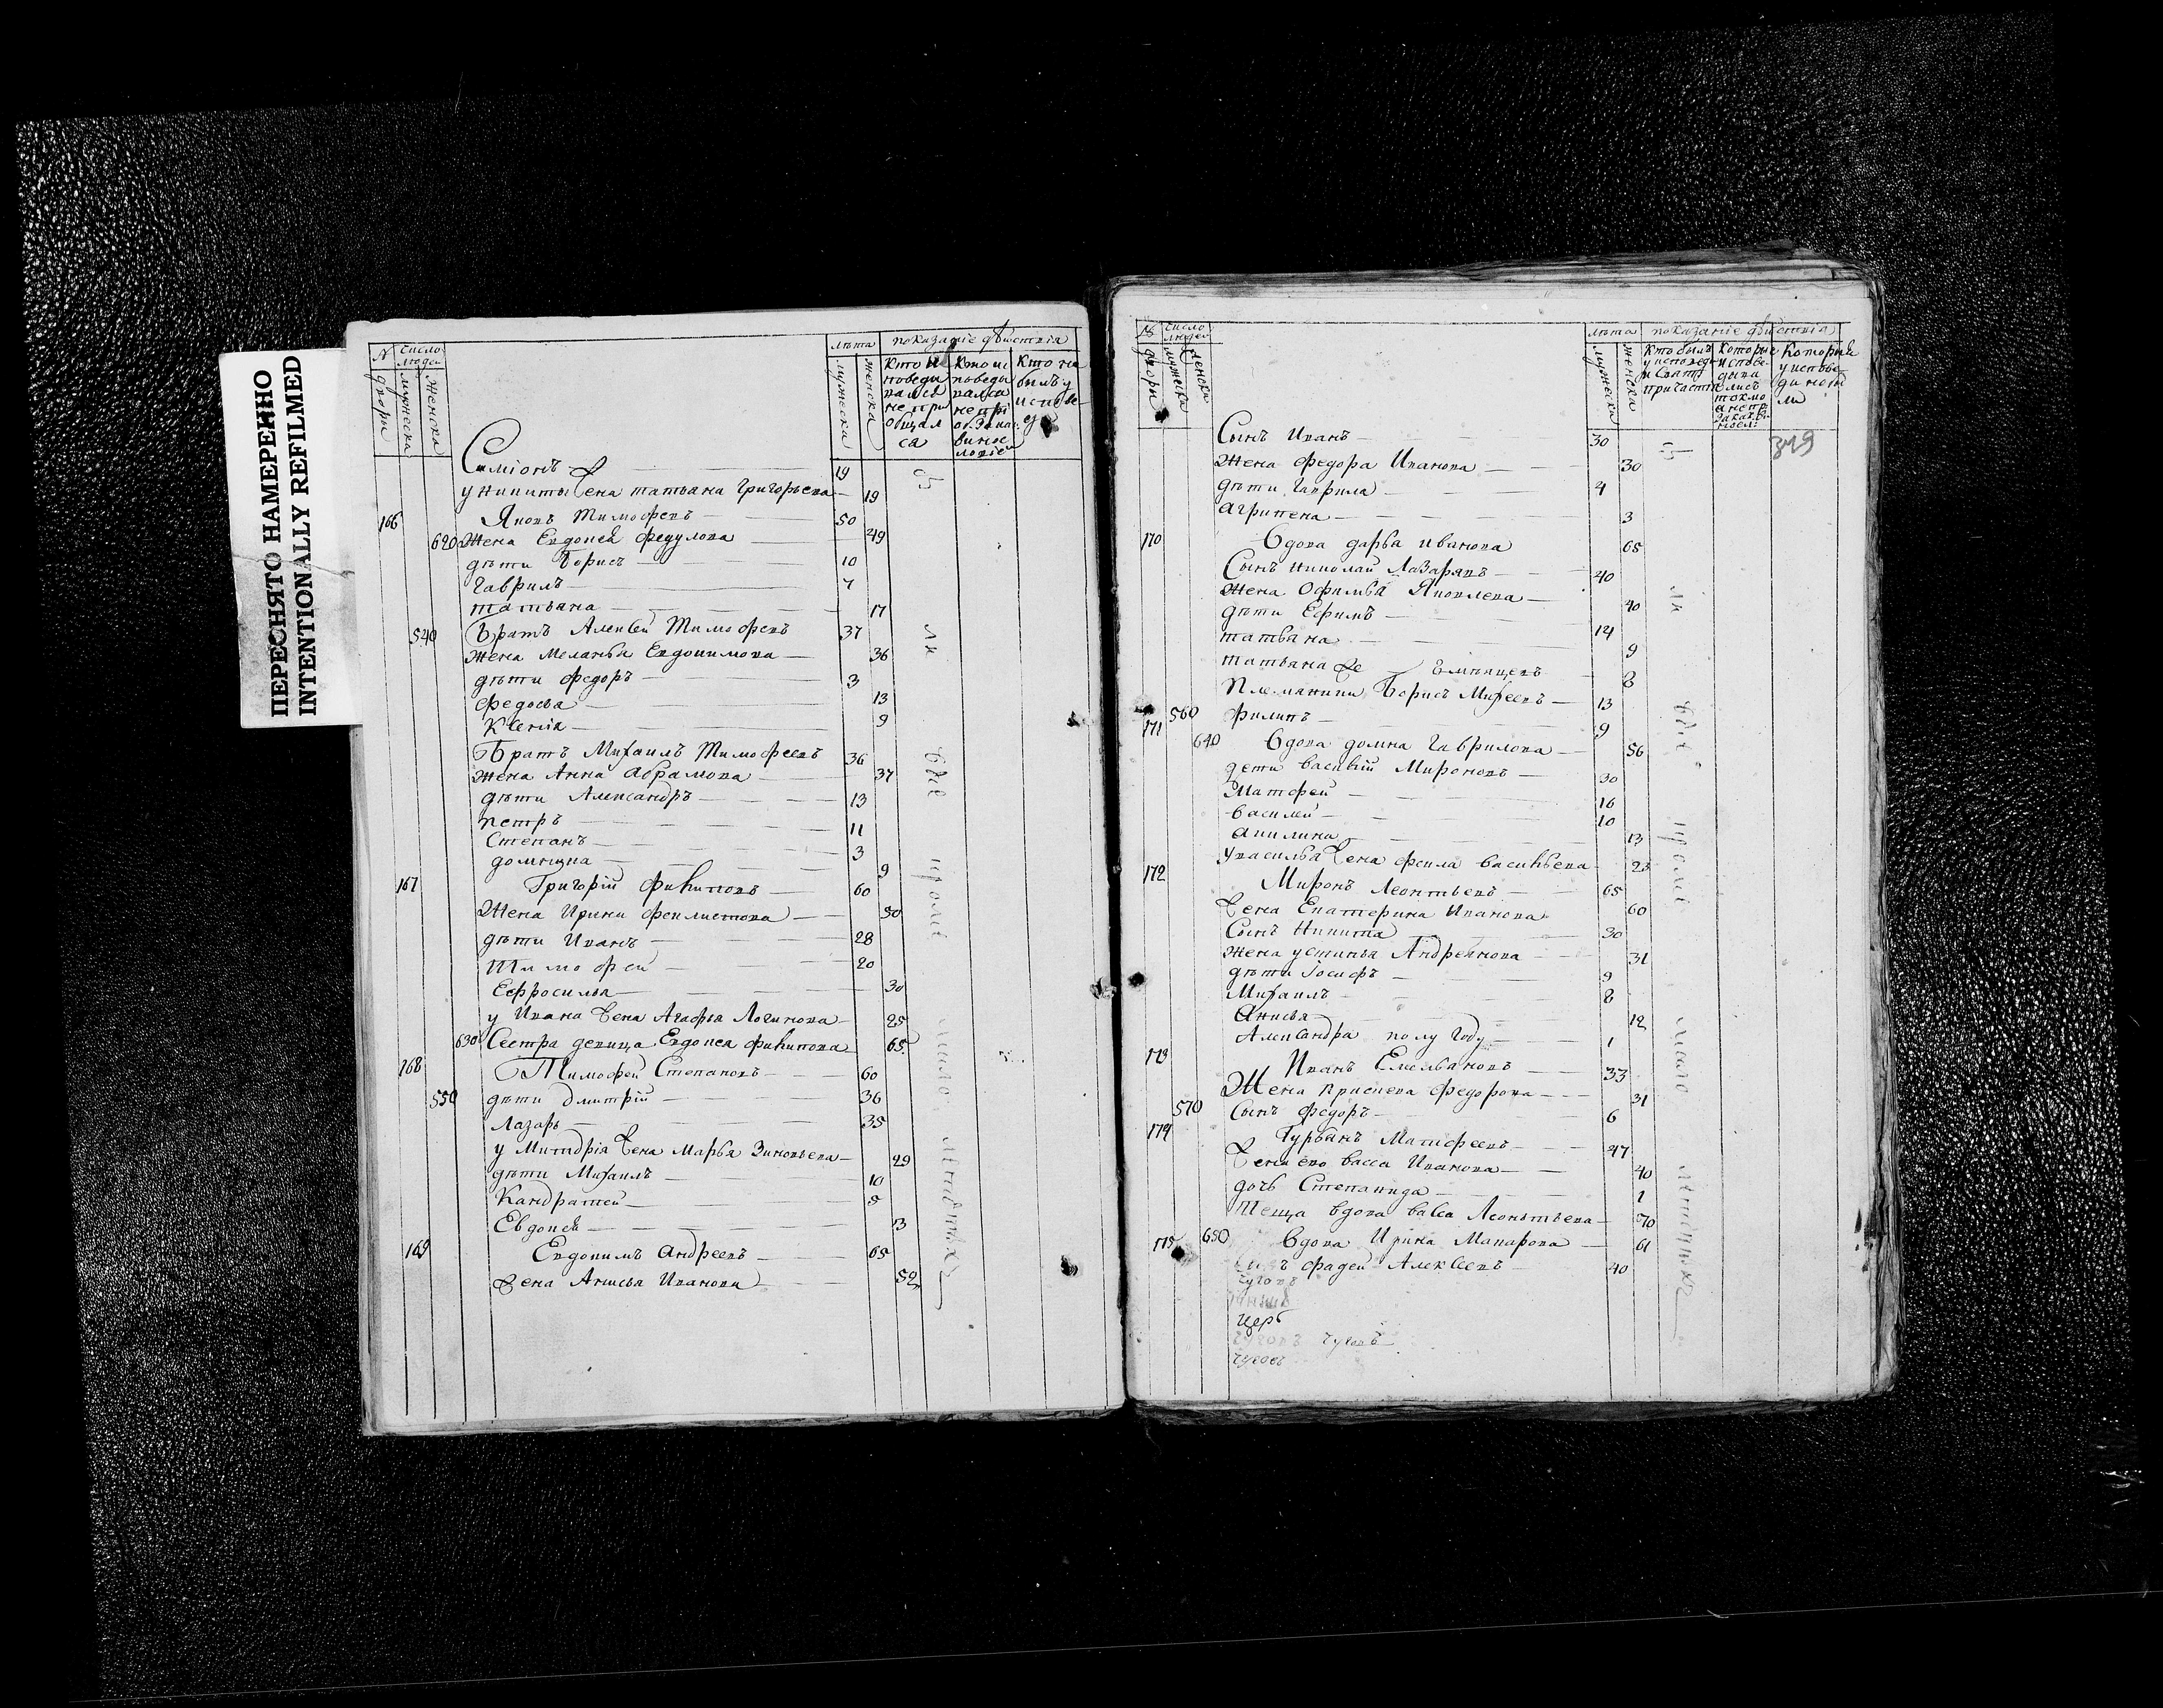 ПЕРЕСНЯТО НАМЕРЕННО
INTENTIONALLY REFILMED
N число людей лѣта показанiе дѣиствiя
двори мужеска женска мужеска женска
Симiонъ 19
у никиты жена татьяна григорьева 19
166 Яковъ Тимофеевъ 50
620 Жена Евдокея федулова 49
дѣти Борисъ 10
гаврилъ 7
татьяна 17
540 Братъ Алексѣй Тимофеевъ 37
жена меланья Евдокимова 36
дѣти федоръ 3
федосья 13
Ксенiя 9
Братъ Михаилъ Тимофеевъ 36
жена Анна абрамова 37
дѣти Александръ 13
петръ 11
степанъ 3
домница 9
167 Григорiй филиповъ 60
жена Ирина феклистова 50
дѣти Иванъ 28
Тимофей 20
Ефросинья 30
у Ивана жена Агафья Логинова 25
630 Сестра девица Евдокея филипова 65
168 Тимофей Степановъ 60
550 дѣти дмитрiй 36
Лазарь 35
у Митдрiя жена марья Зиновьева 29
дѣти Михаилъ 10
Кандратей 5
Евдокея 3
169 Евдокимъ андреевъ 65
жена Анисья Иванова 52
№ число людей лѣта показанiе дѣиствiя
двори мужеска женска мужеска женска
349
Сынъ Иванъ 30
жена федора Иванова 30
дѣти гаврила 4
агрипена 3
170 вдова дарья иванова 65
Сынъ николай Лазаревъ 40
жена Офимья Яковлева 40
дѣти Ефимъ 14
татьяна 9
татьяна же 8
Племяники Борисъ Михеевъ 13
560 филипъ 9
171 640 вдова домна гаврилова 56
дети василiй Мироновъ 30
Матфей 16
василей 10
акилина 13
у василья жена фекла васильева 23
172 Миронъ Леонтьевъ 65
жена Екатерина Иванова 60
Сынъ никита 30
жена устинья Андреянова 31
дѣти Iосифъ 9
Михаилъ 8
Анисья 12
Александра полу году 1
173 Иванъ Емельяновъ 33
Жена праскева федорова 31
570 Сынъ федоръ 6
174 Гурьянъ Матфеевъ 47
жена ево васса Иванова 40
дочь Степанида 1
Теща вдова васса Леонътьева 70
175 650 вдова Ирина Макарова 61
фадей Алексеевъ 40
чуговъ
церь
чуговъ
чуговъ